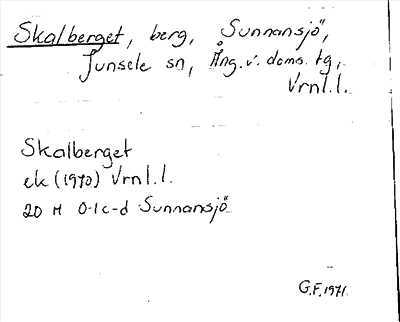 Skalberget, berg, Sunnansjö,
Junsele sn, Ång. v. doms. tg,
Vrnl.l.
Skalberget
ek (1970) Vrnl.l.
20 H 0-1c-d Sunnansjö
G.F. 1971.